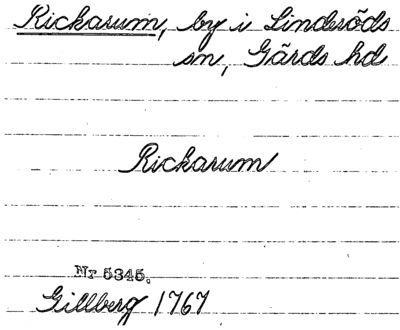 Rickarum, by i Linderöds
sn, Gärds hd
Rickarum
Nr 5345.
Gillberg 1767